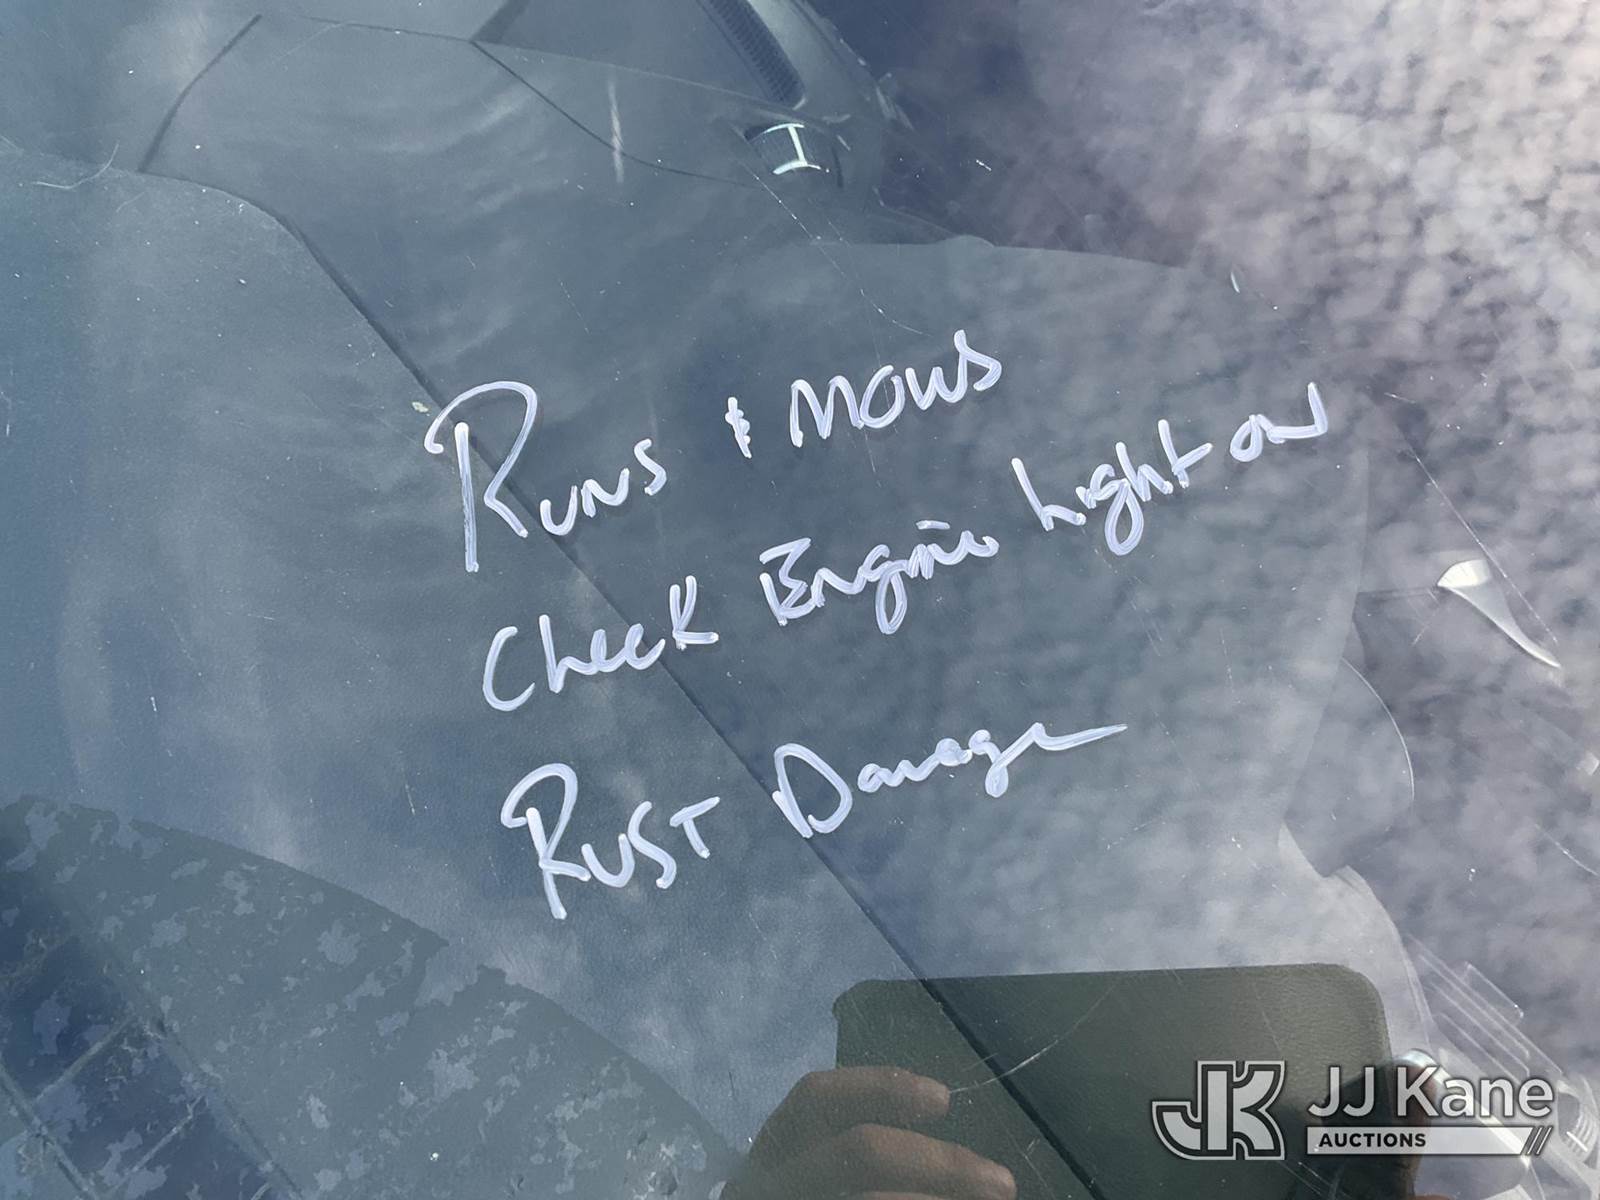 Runs & mows
Check Engine Light on
Rust Damage
JK JJ Kane
AUCTIONS